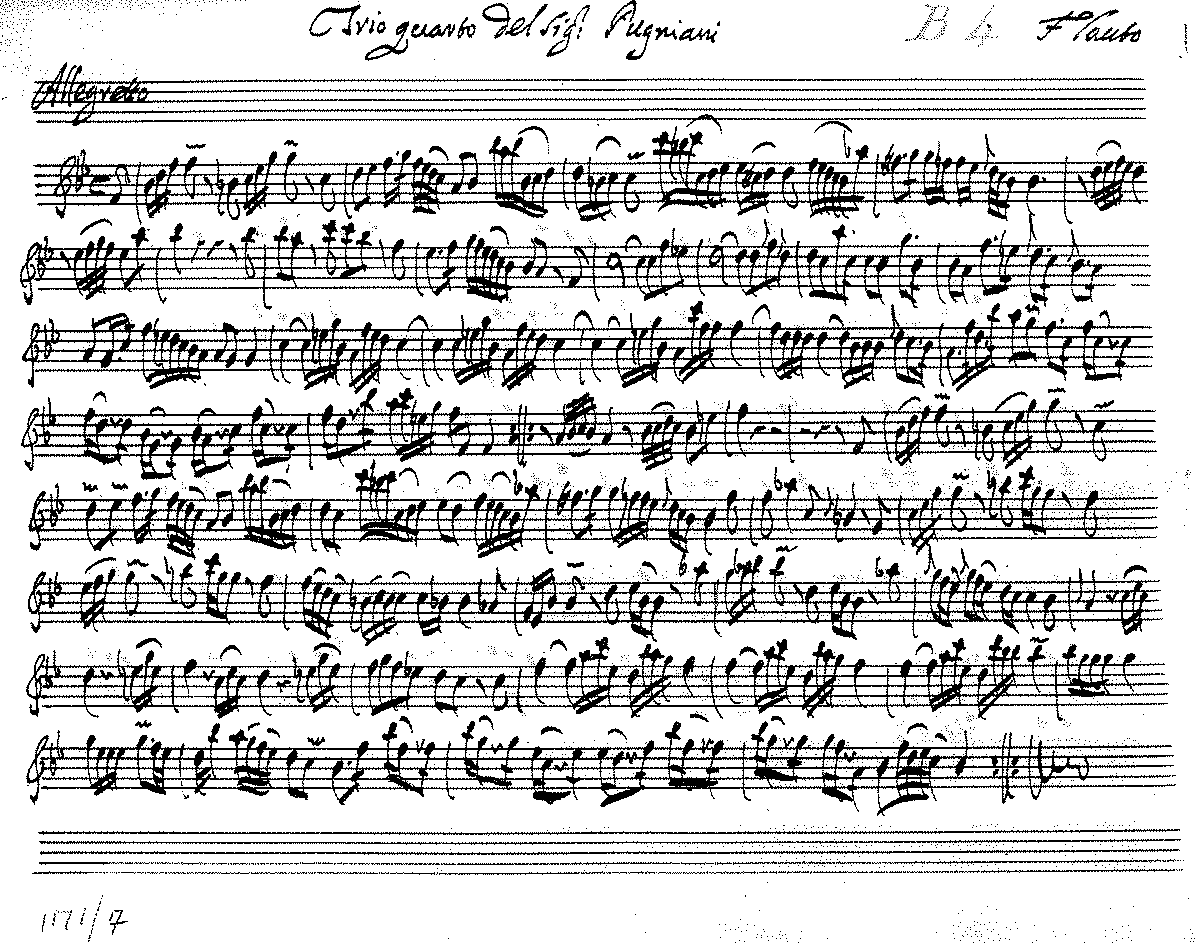 Trio quarto del Sigl Pugniani B 4 Flauto
Allegretto
1171/7